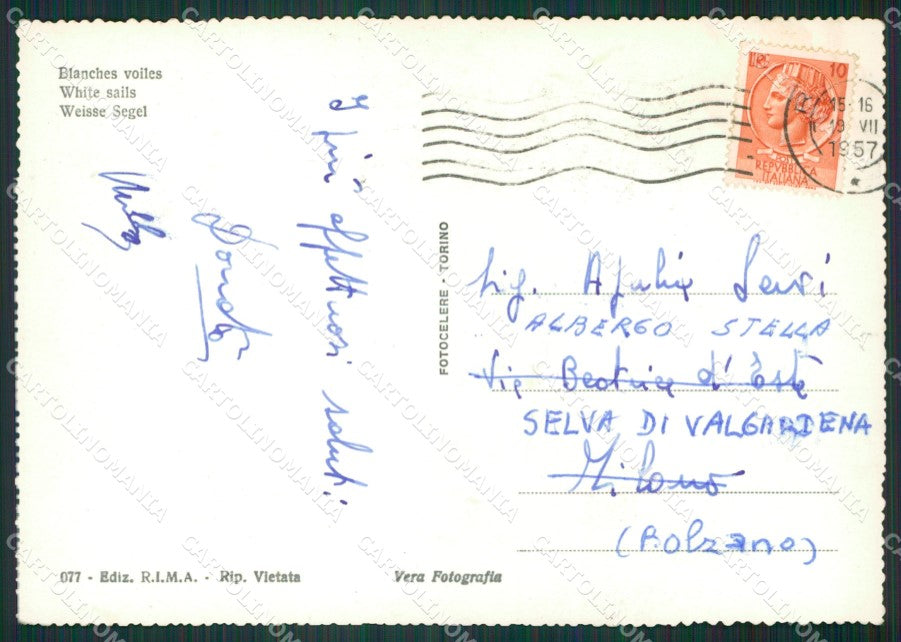 Blanches voiles
White sails
Weisse Segel
I più affettuosi saluti
FOTOCELERE - TORINO
10
15-16
VII
1957
REPVBBLICA
ITALIANA
Sig.
ALBERGO STELLA
Via Beatrice d'Este
SELVA DI VALGARDENA
Milano
(Bolzano)
077 - Ediz. R.I.M.A. - Rip. Vietata
Vera Fotografia
CARTOLINOMANIA